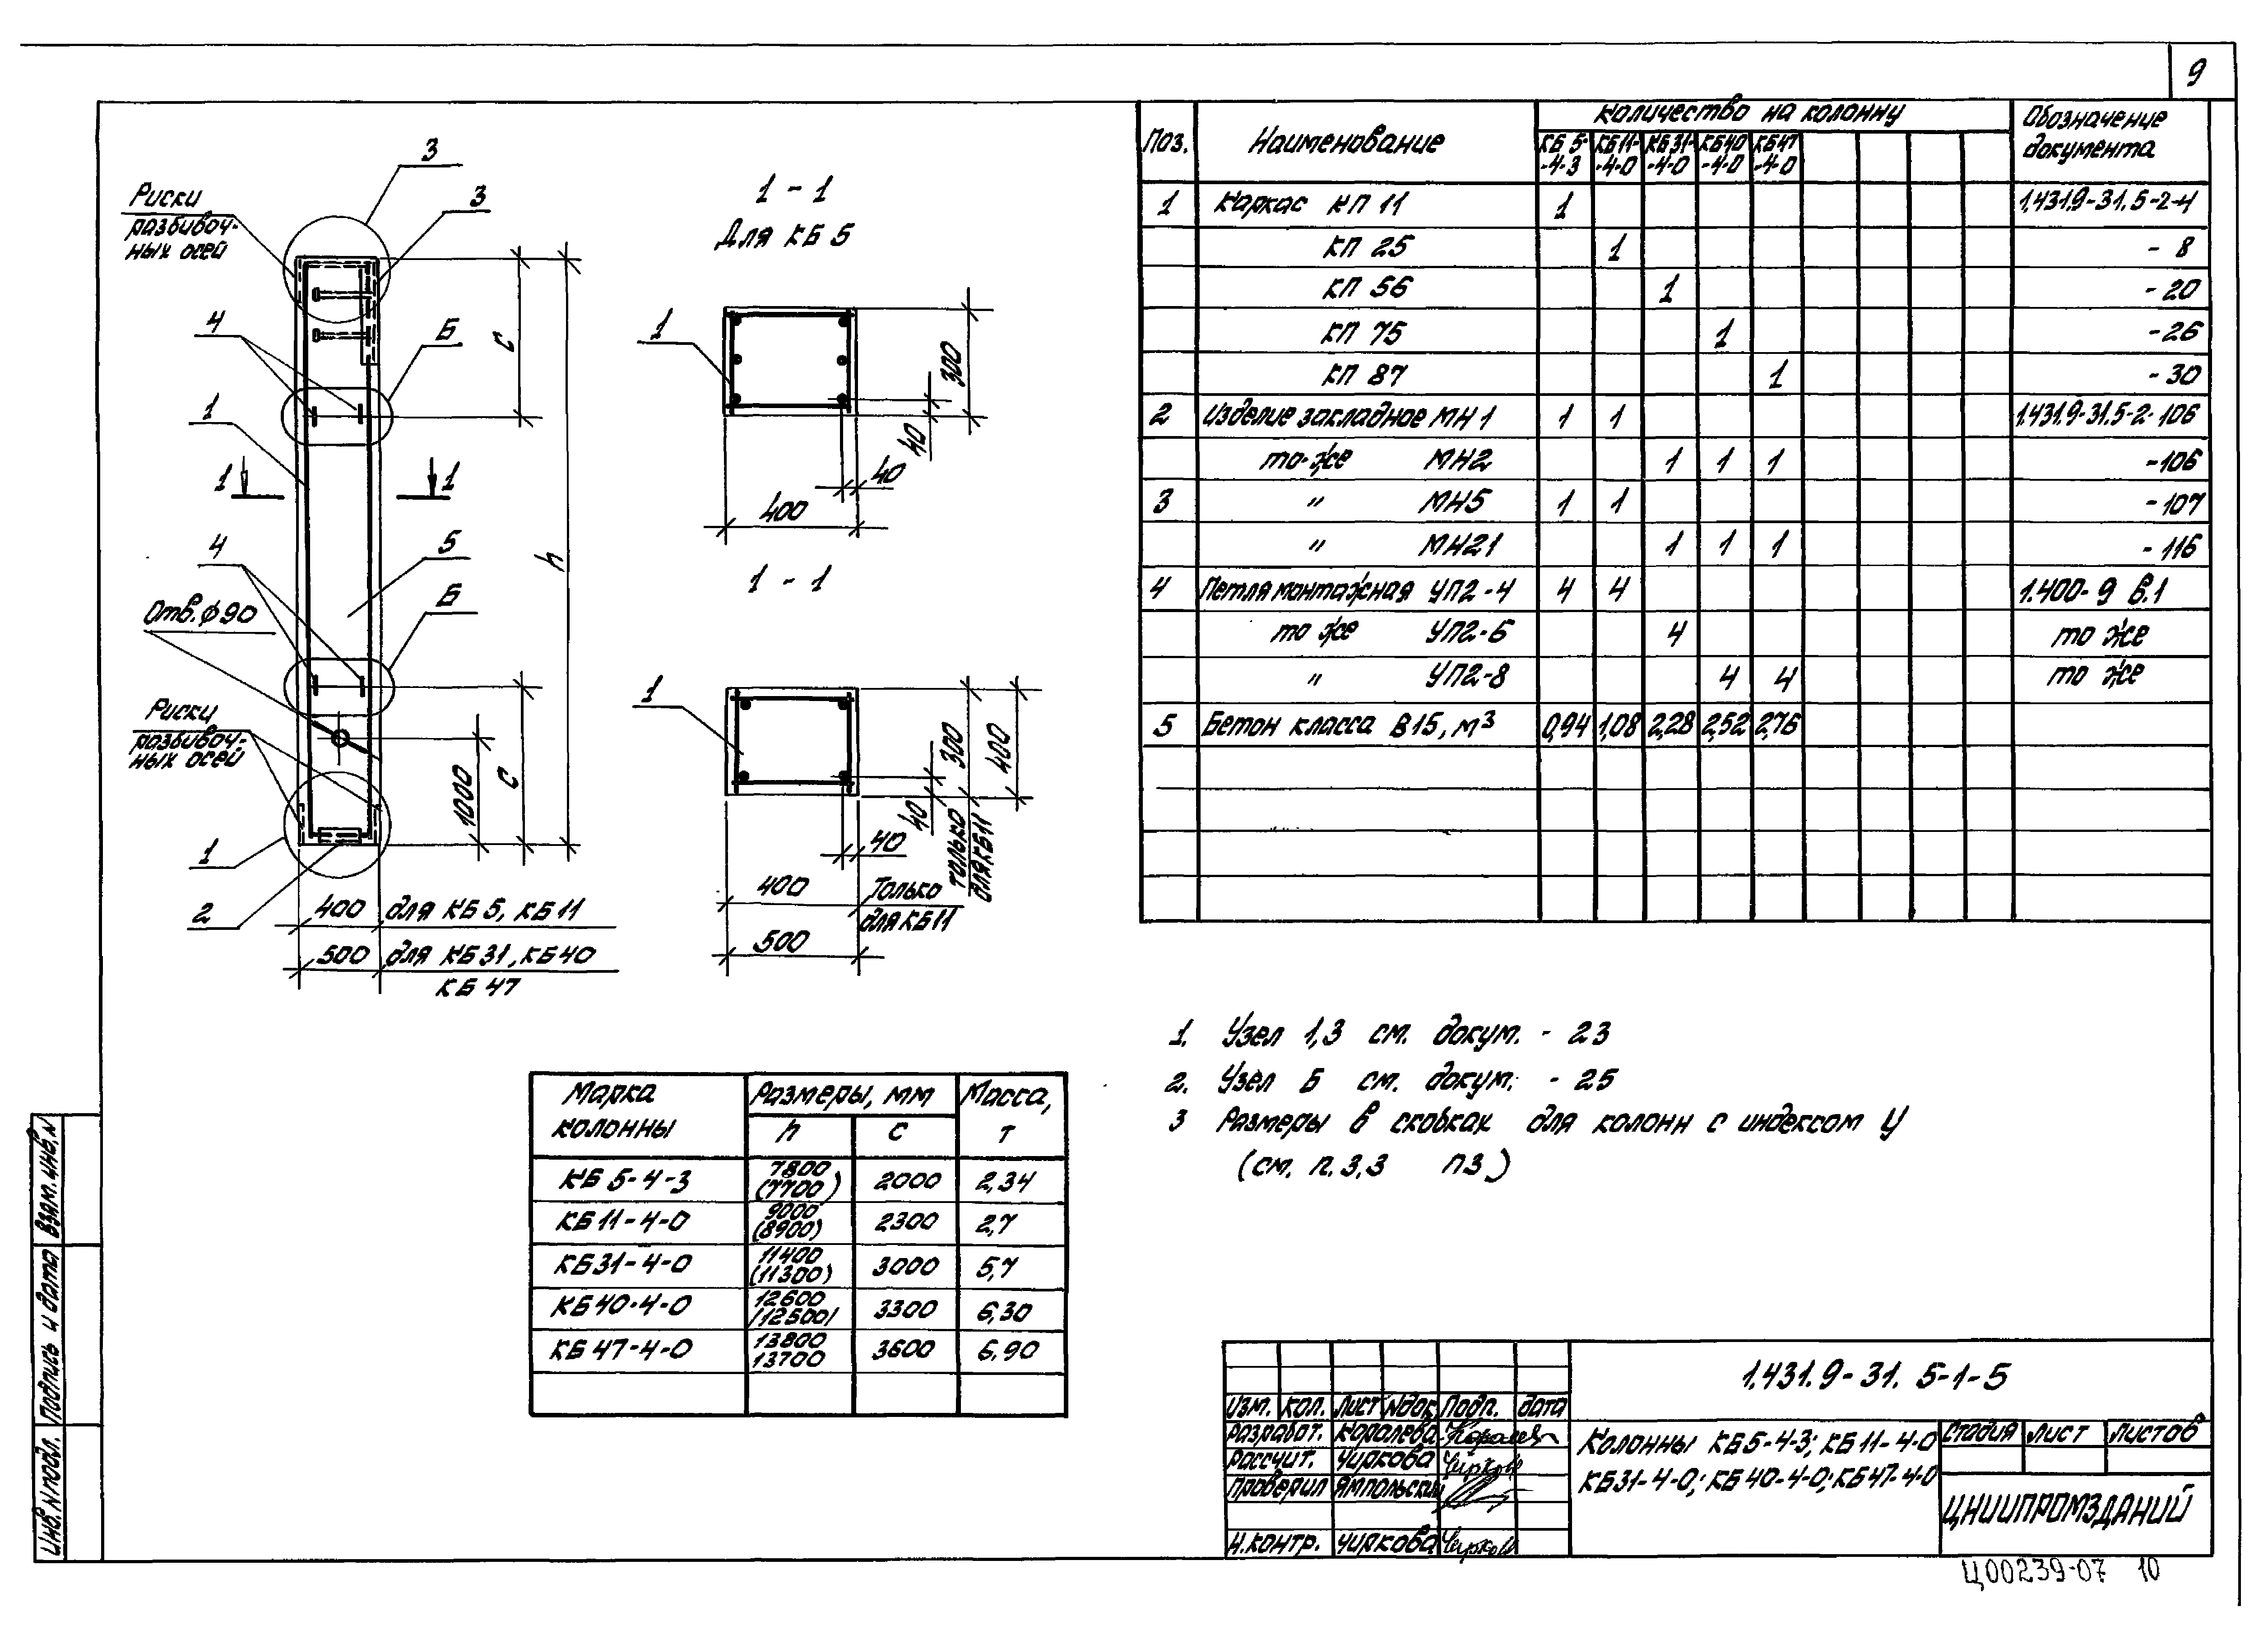 9
3
Риски
разбивоч-
ных осей
3
4
Б
1
1
1
4
5
Отв. ϕ90
Б
Риски
разбивоч-
ных осей
1
2
c
h
c
1000
400 для КБ5, КБ11
500 для КБ31, КБ40
КБ 47
1 - 1
Для КБ 5
1
300
40
40
400
1 - 1
1
300
400
40
только
для КБ11
40
400 Только
для КБ11
500
Поз. Наименование Количество на колонну Обозначение документа
КБ 5-4-3 КБ11-4-0 КБ31-4-0 КБ40-4-0 КБ47-4-0
1 Каркас КП 11 1 1.431.9-31.5-2-4
КП 25 1 - 8
КП 56 1 - 20
КП 75 1 - 26
КП 87 1 - 30
2 Изделие закладное МН1 1 1 1.431.9-31.5-2-106
то же МН2 1 1 1 -106
3 " МН5 1 1 -107
" МН21 1 1 1 - 116
4 Петля монтажная УП2-4 4 4 1.400-9 в.1
то же УП2-6 4 то же
" УП2-8 4 4 то же
5 Бетон класса В15, м³ 0,94 1,08 2,28 2,52 2,76
1. Узел 1,3 см. докум. - 23
2. Узел Б см. докум. - 25
3 Размеры в скобках для колонн с индексом У
(см. п. 3,3 ПЗ)
Марка колонны Размеры, мм Масса, т
h c
КБ 5-4-3 7800 (7700) 2000 2,34
КБ11-4-0 9000 (8900) 2300 2,7
КБ31-4-0 11400 (11300) 3000 5,7
КБ40-4-0 12600 (12500) 3300 6,30
КБ 47-4-0 13800 13700 3600 6,90
Взам. инв. N
Подпись и дата
Инв. N подл.
Изм. Кол. Лист Nдок Подп. Дата
Разработ. Королева
Рассчит. Чиркова
Проверил Ямпольский
Н.контр. Чиркова
1.431.9-31. 5-1-5
Колонны КБ5-4-3; КБ11-4-0
КБ31-4-0; КБ40-4-0; КБ47-4-0
Стадия Лист Листов
ЦНИИПРОМЗДАНИЙ
Ц00239-07 10